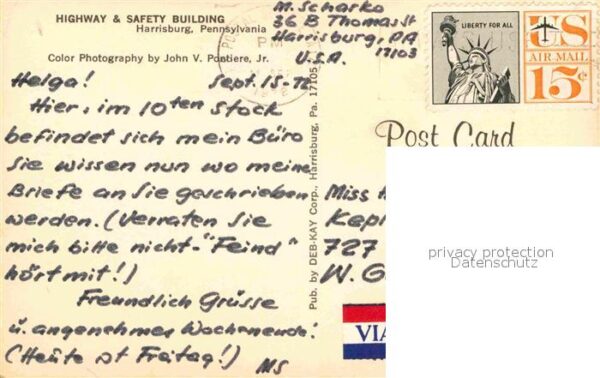 HIGHWAY & SAFETY BUILDING
Harrisburg, Pennsylvania
Color Photography by John V. Pontiere, Jr.
M. Scharko
36 B Thomas st
Harrisburg, PA
17103
U.S.A.
PM
LIBERTY FOR ALL
US
AIR MAIL
15¢
Helga! Sept. 15-72
Hier, im 10ten Stock
befindet sich mein Büro
Sie wissen nun wo meine
Briefe an Sie geschrieben
werden. (Verraten Sie
mich bitte nicht-"Feind"
hört mit!)
Freundlich Grüsse
u. angenehmes Wochenende!
(Heute ist Freitag!) MS
Pub. by DEB-KAY Corp., Harrisburg, Pa. 17105
Post Card
Miss
727
W. G
privacy protection
Datenschutz
VIA